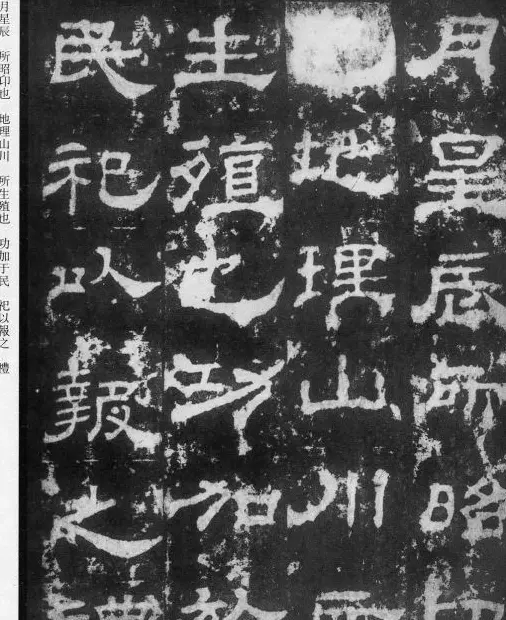 月星辰所昭卬
地理山川所
生殖也功加於
民祀以報之禮
月星辰 所昭卬也 地理山川 所生殖也 功加于民 祀以報之 禮